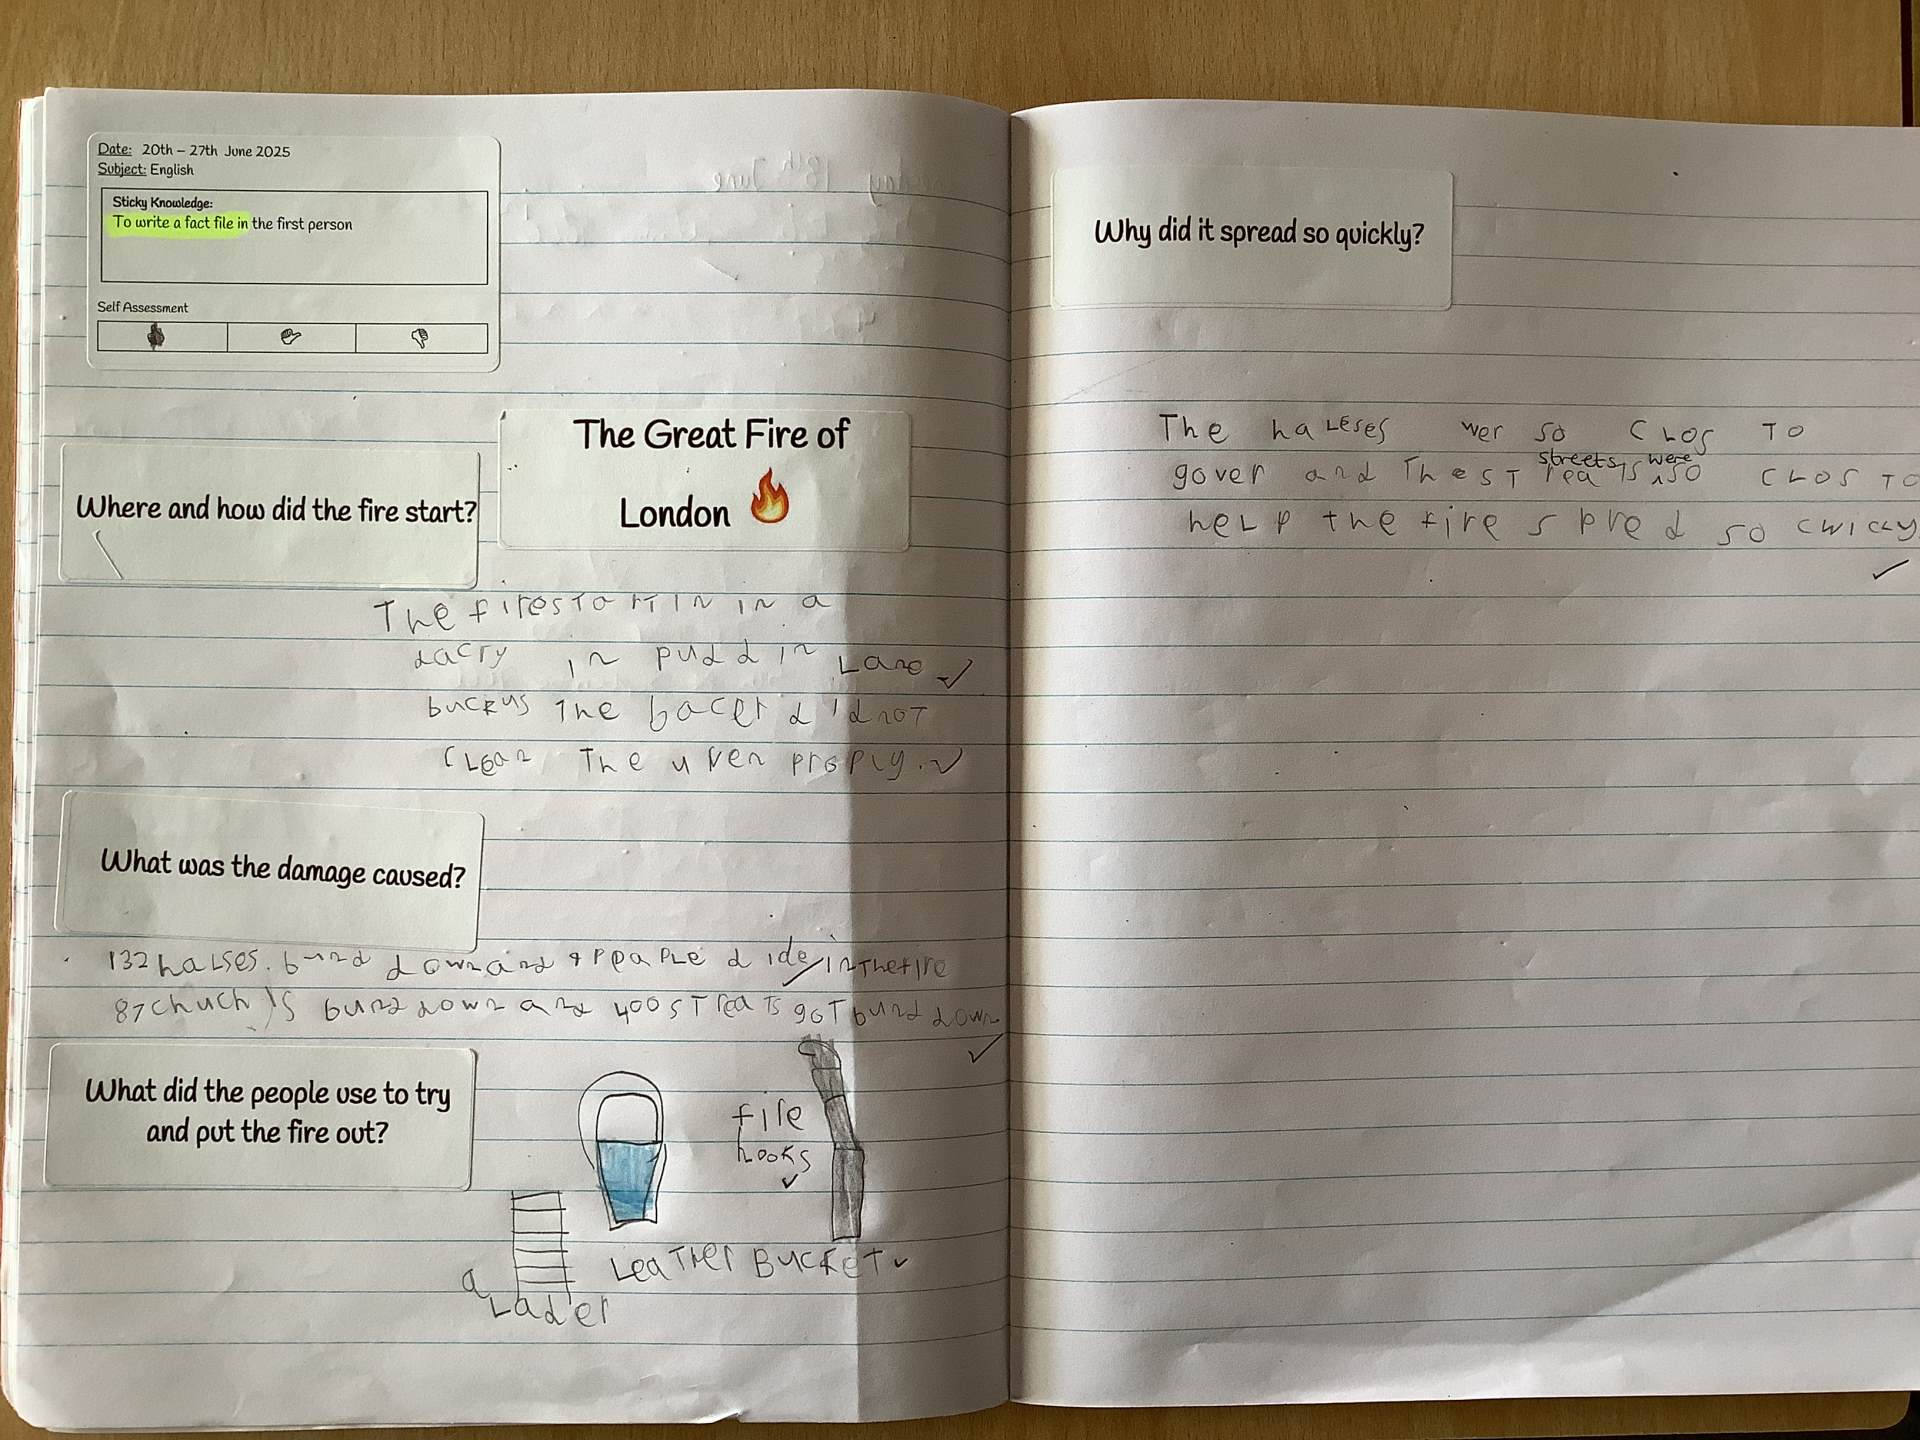 Date: 20th – 27th June 2025
Subject: English
Sticky Knowledge:
To write a fact file in the first person
Self Assessment
The Great Fire of
London
Where and how did the fire start?
The fire startin in a
dacry in puddin Lane
buckus The bacer didnot
Clean The uven proply.
What was the damage caused?
132 halses. burnd down and peaple dide in The fire
87 chuch is burnd down and 400 streats got burnd down
What did the people use to try
and put the fire out?
fire
hooks
LeaTher BuckeT
a
Lader
Why did it spread so quickly?
The haLeses wer so CLOS TO
streets were
gover and The STreats so CLOS TO
heLp the fire spred so cwicLy